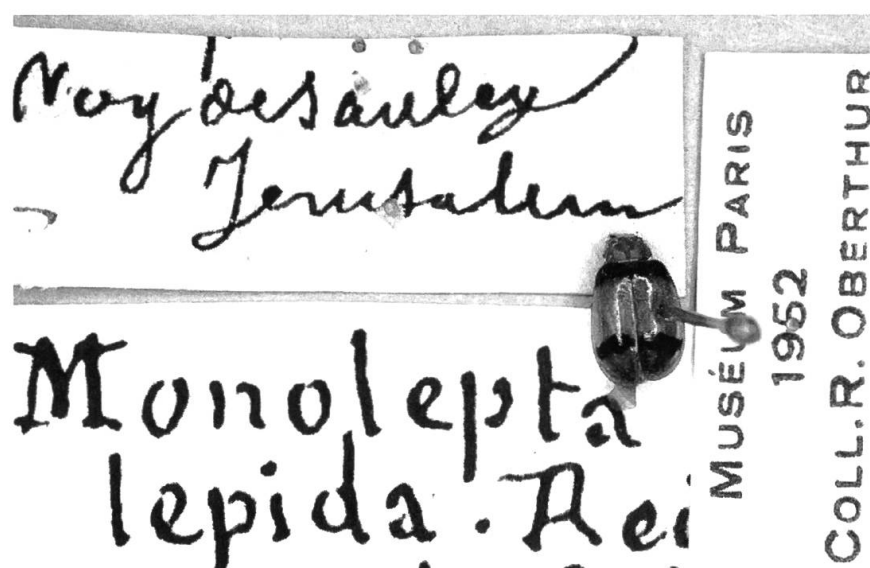 Jerusalem
Monolepta
lepida. Rei
MUSÉUM PARIS
1952
COLL. R. OBERTHUR